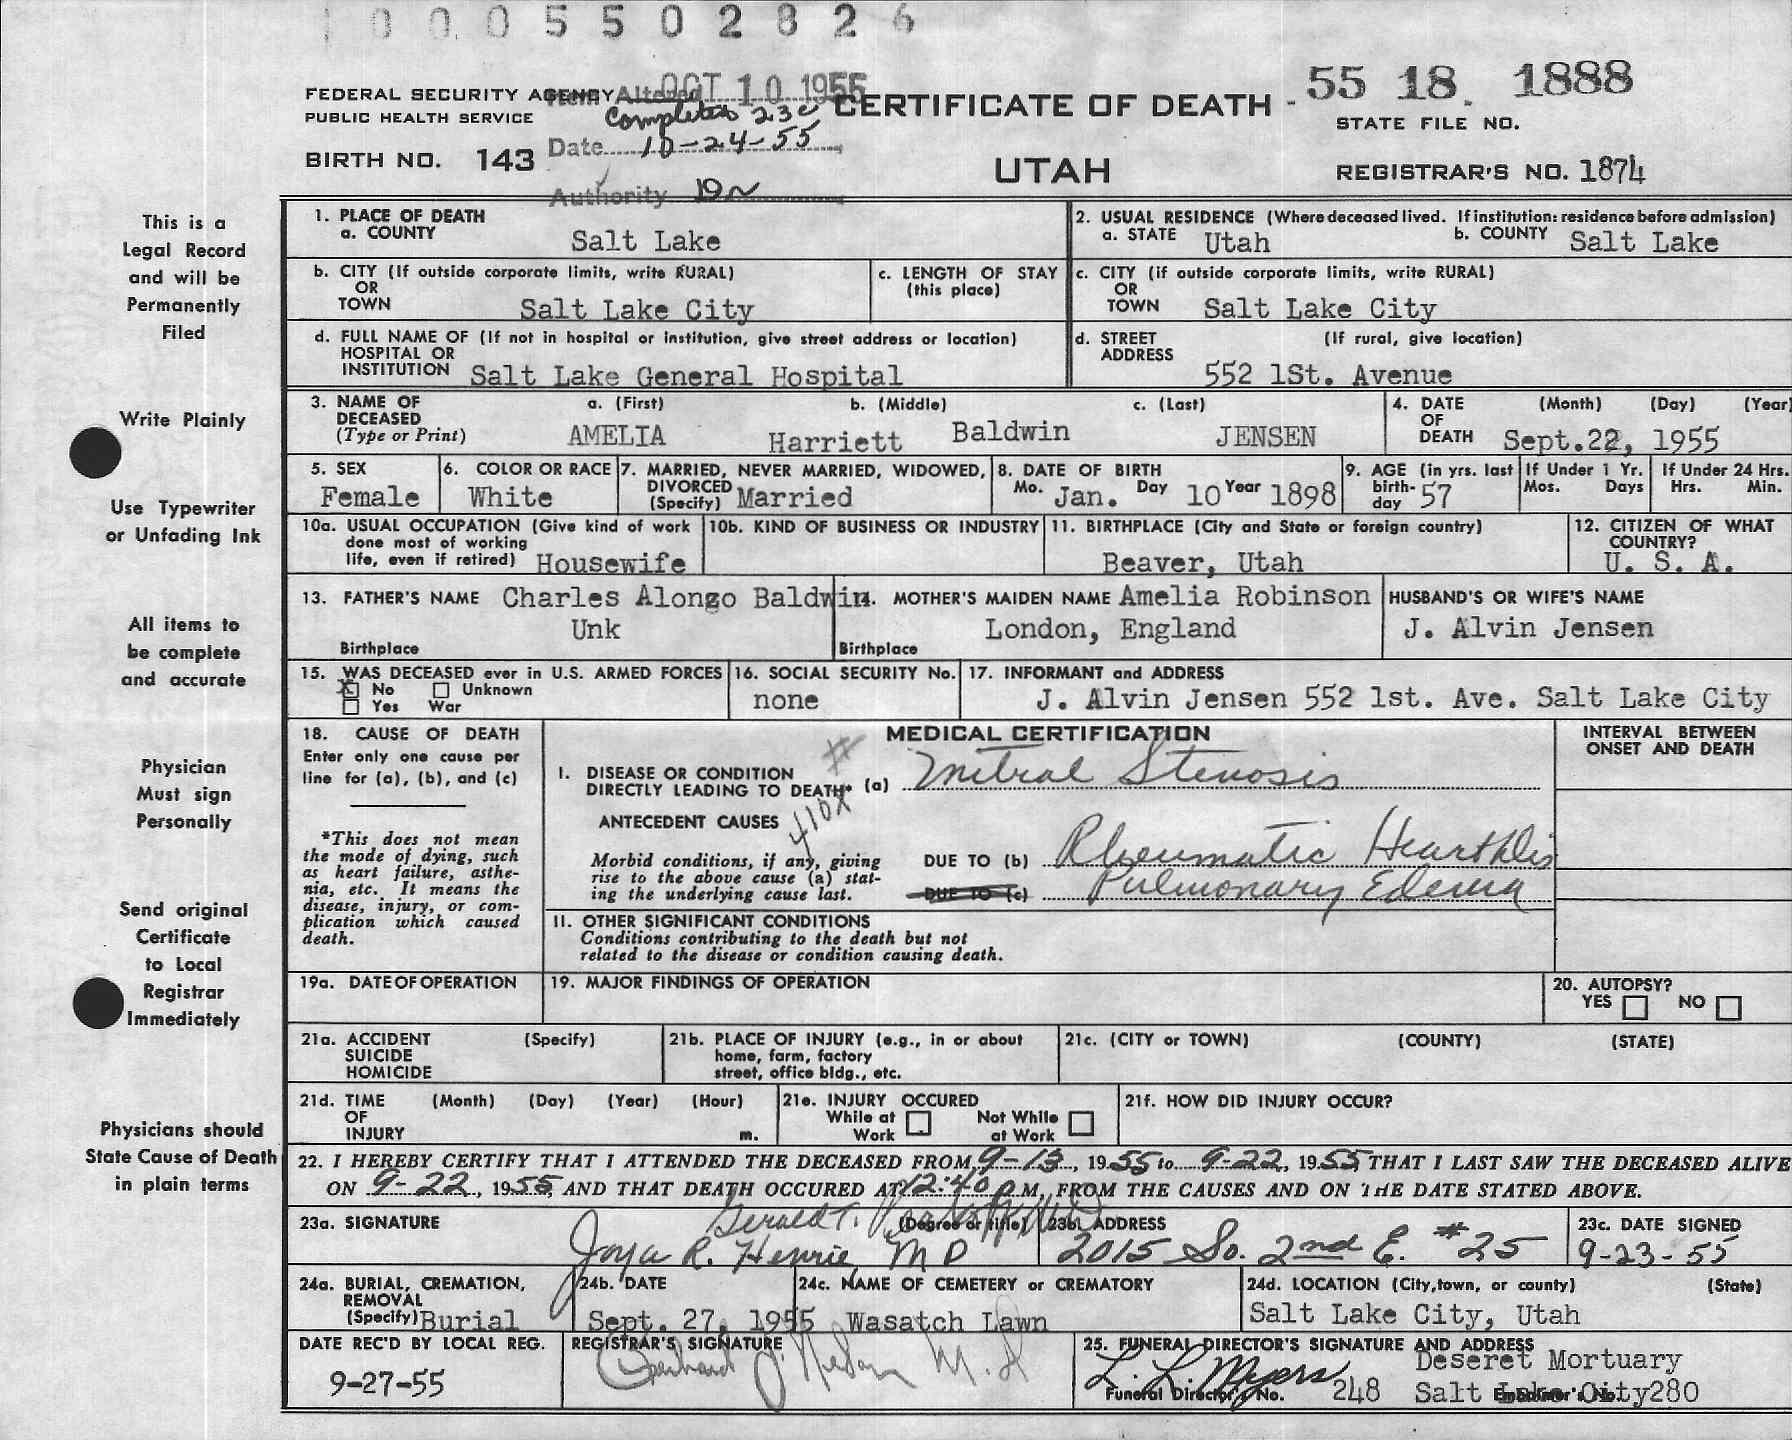 0 0 0 5 5 0 2 8 2 6
FEDERAL SECURITY AGENCY
PUBLIC HEALTH SERVICE
BIRTH NO. 143
Item Altered OCT 10 1955
Completed 23c
Date 10-24-55
Authority
CERTIFICATE OF DEATH
UTAH
55 18 1888
STATE FILE NO.
REGISTRAR'S NO. 1874
This is a
Legal Record
and will be
Permanently
Filed
Write Plainly
Use Typewriter
or Unfading Ink
All items to
be complete
and accurate
Physician
Must sign
Personally
Send original
Certificate
to Local
Registrar
Immediately
Physicians should
State Cause of Death
in plain terms
1. PLACE OF DEATH
a. COUNTY Salt Lake
2. USUAL RESIDENCE (Where deceased lived. If institution: residence before admission)
a. STATE Utah b. COUNTY Salt Lake
b. CITY (If outside corporate limits, write RURAL)
OR
TOWN Salt Lake City
c. LENGTH OF STAY
(this place)
c. CITY (if outside corporate limits, write RURAL)
OR
TOWN Salt Lake City
d. FULL NAME OF (If not in hospital or institution, give street address or location)
HOSPITAL OR
INSTITUTION Salt Lake General Hospital
d. STREET (If rural, give location)
ADDRESS
552 1St. Avenue
3. NAME OF DECEASED (Type or Print)
a. (First) b. (Middle) c. (Last)
AMELIA Harriett Baldwin JENSEN
4. DATE OF DEATH (Month) (Day) (Year)
Sept.22, 1955
5. SEX
Female
6. COLOR OR RACE
White
7. MARRIED, NEVER MARRIED, WIDOWED,
DIVORCED
(Specify) Married
8. DATE OF BIRTH
Mo. Jan. Day 10 Year 1898
9. AGE (in yrs. last birth-day 57
If Under 1 Yr.
Mos. Days
If Under 24 Hrs.
Hrs. Min.
10a. USUAL OCCUPATION (Give kind of work
done most of working
life, even if retired) Housewife
10b. KIND OF BUSINESS OR INDUSTRY
11. BIRTHPLACE (City and State or foreign country)
Beaver, Utah
12. CITIZEN OF WHAT
COUNTRY?
U. S. A.
13. FATHER'S NAME Charles Alongo Baldwin
Unk
Birthplace
14. MOTHER'S MAIDEN NAME Amelia Robinson
London, England
Birthplace
HUSBAND'S OR WIFE'S NAME
J. Alvin Jensen
15. WAS DECEASED ever in U.S. ARMED FORCES
X No Unknown
Yes War
16. SOCIAL SECURITY No.
none
17. INFORMANT and ADDRESS
J. Alvin Jensen 552 1st. Ave. Salt Lake City
18. CAUSE OF DEATH
Enter only one cause per
line for (a), (b), and (c)
*This does not mean
the mode of dying, such
as heart failure, asthe-
nia, etc. It means the
disease, injury, or com-
plication which caused
death.
MEDICAL CERTIFICATION
INTERVAL BETWEEN
ONSET AND DEATH
#
I. DISEASE OR CONDITION
DIRECTLY LEADING TO DEATH* (a) Mitral Stenosis
410X
ANTECEDENT CAUSES
Morbid conditions, if any, giving
rise to the above cause (a) stat-
ing the underlying cause last.
DUE TO (b) Rheumatic Heart Dis
DUE TO (c) Pulmonary Edema
II. OTHER SIGNIFICANT CONDITIONS
Conditions contributing to the death but not
related to the disease or condition causing death.
19a. DATE OF OPERATION
19. MAJOR FINDINGS OF OPERATION
20. AUTOPSY?
YES NO
21a. ACCIDENT (Specify)
SUICIDE
HOMICIDE
21b. PLACE OF INJURY (e.g., in or about
home, farm, factory
street, office bldg., etc.
21c. (CITY or TOWN) (COUNTY) (STATE)
21d. TIME (Month) (Day) (Year) (Hour)
OF
INJURY m.
21e. INJURY OCCURED
While at Work Not While at Work
21f. HOW DID INJURY OCCUR?
22. I HEREBY CERTIFY THAT I ATTENDED THE DECEASED FROM 9-13, 1955 to 9-22, 1955, THAT I LAST SAW THE DECEASED ALIVE
ON 9-22, 1955, AND THAT DEATH OCCURED AT 12:40 P.M, FROM THE CAUSES AND ON THE DATE STATED ABOVE.
23a. SIGNATURE (Degree or title)
Gerald T.
Joya R. Henrie MD
23b. ADDRESS
2015 So. 2nd E. #25
23c. DATE SIGNED
9-23-55
24a. BURIAL, CREMATION,
REMOVAL
(Specify) Burial
24b. DATE
Sept. 27, 1955
24c. NAME OF CEMETERY or CREMATORY
Wasatch Lawn
24d. LOCATION (City, town, or county) (State)
Salt Lake City, Utah
DATE REC'D BY LOCAL REG.
9-27-55
REGISTRAR'S SIGNATURE
M.D
25. FUNERAL DIRECTOR'S SIGNATURE AND ADDRESS
L. L. Myers Deseret Mortuary
Funeral Director's No. 248 Salt Lake City 280
Embalmer's No.